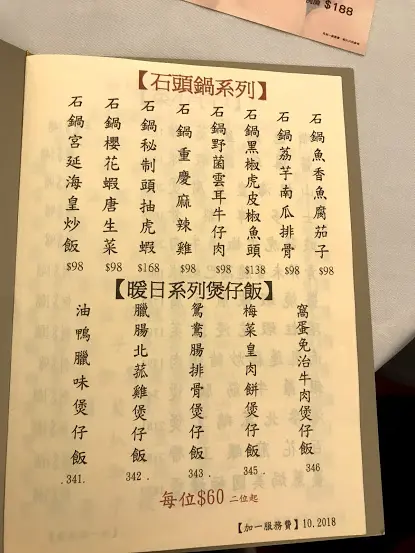 $188
【石頭鍋系列】
石鍋魚香魚腐茄子
$98
石鍋荔芋南瓜排骨
$98
石鍋黑椒虎皮椒魚頭
$138
石鍋野菌雲耳牛仔肉
$98
石鍋重慶麻辣雞
$98
石鍋秘制頭抽虎蝦
$168
石鍋櫻花蝦唐生菜
$98
石鍋宮延海皇炒飯
$98
【暖日系列煲仔飯】
窩蛋免治牛肉煲仔飯
346
梅菜皇肉餅煲仔飯
345.
鴛鴦腸排骨煲仔飯
343.
臘腸北菰雞煲仔飯
342.
油鴨臘味煲仔飯
.341.
每位$60 二位起
【加一服務費】10.2018